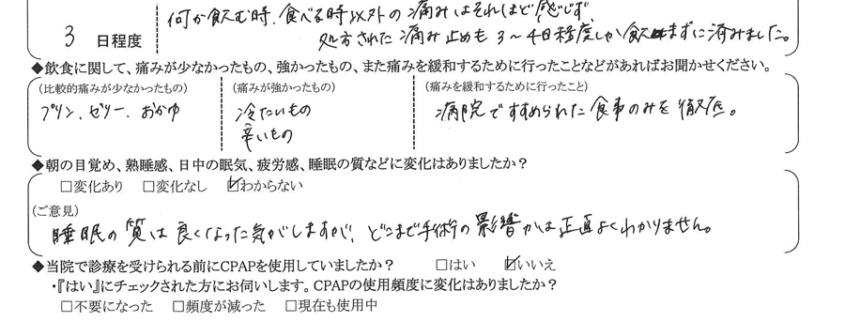 何か飲む時、食べる時以外の痛みはそれほど感じず、
3 日程度 処方された痛み止めも3～4日程度しか飲まずに済みました。
◆飲食に関して、痛みが少なかったもの、強かったもの、また痛みを緩和するために行ったことなどがあればお聞かせください。
(比較的痛みが少なかったもの) (痛みが強かったもの) (痛みを緩和するために行ったこと)
プリン、ゼリー、おかゆ 冷たいもの 病院ですすめられた食事のみを徹底。
辛いもの
◆朝の目覚め、熟睡感、日中の眠気、疲労感、睡眠の質などに変化はありましたか？
□変化あり □変化なし ☑わからない
(ご意見)
睡眠の質は良くなった気がしますが、どこまで手術の影響かは正直よくわかりません。
◆当院で診療を受けられる前にCPAPを使用していましたか？ □はい ☑いいえ
・『はい』にチェックされた方にお伺いします。CPAPの使用頻度に変化はありましたか？
□不要になった □頻度が減った □現在も使用中